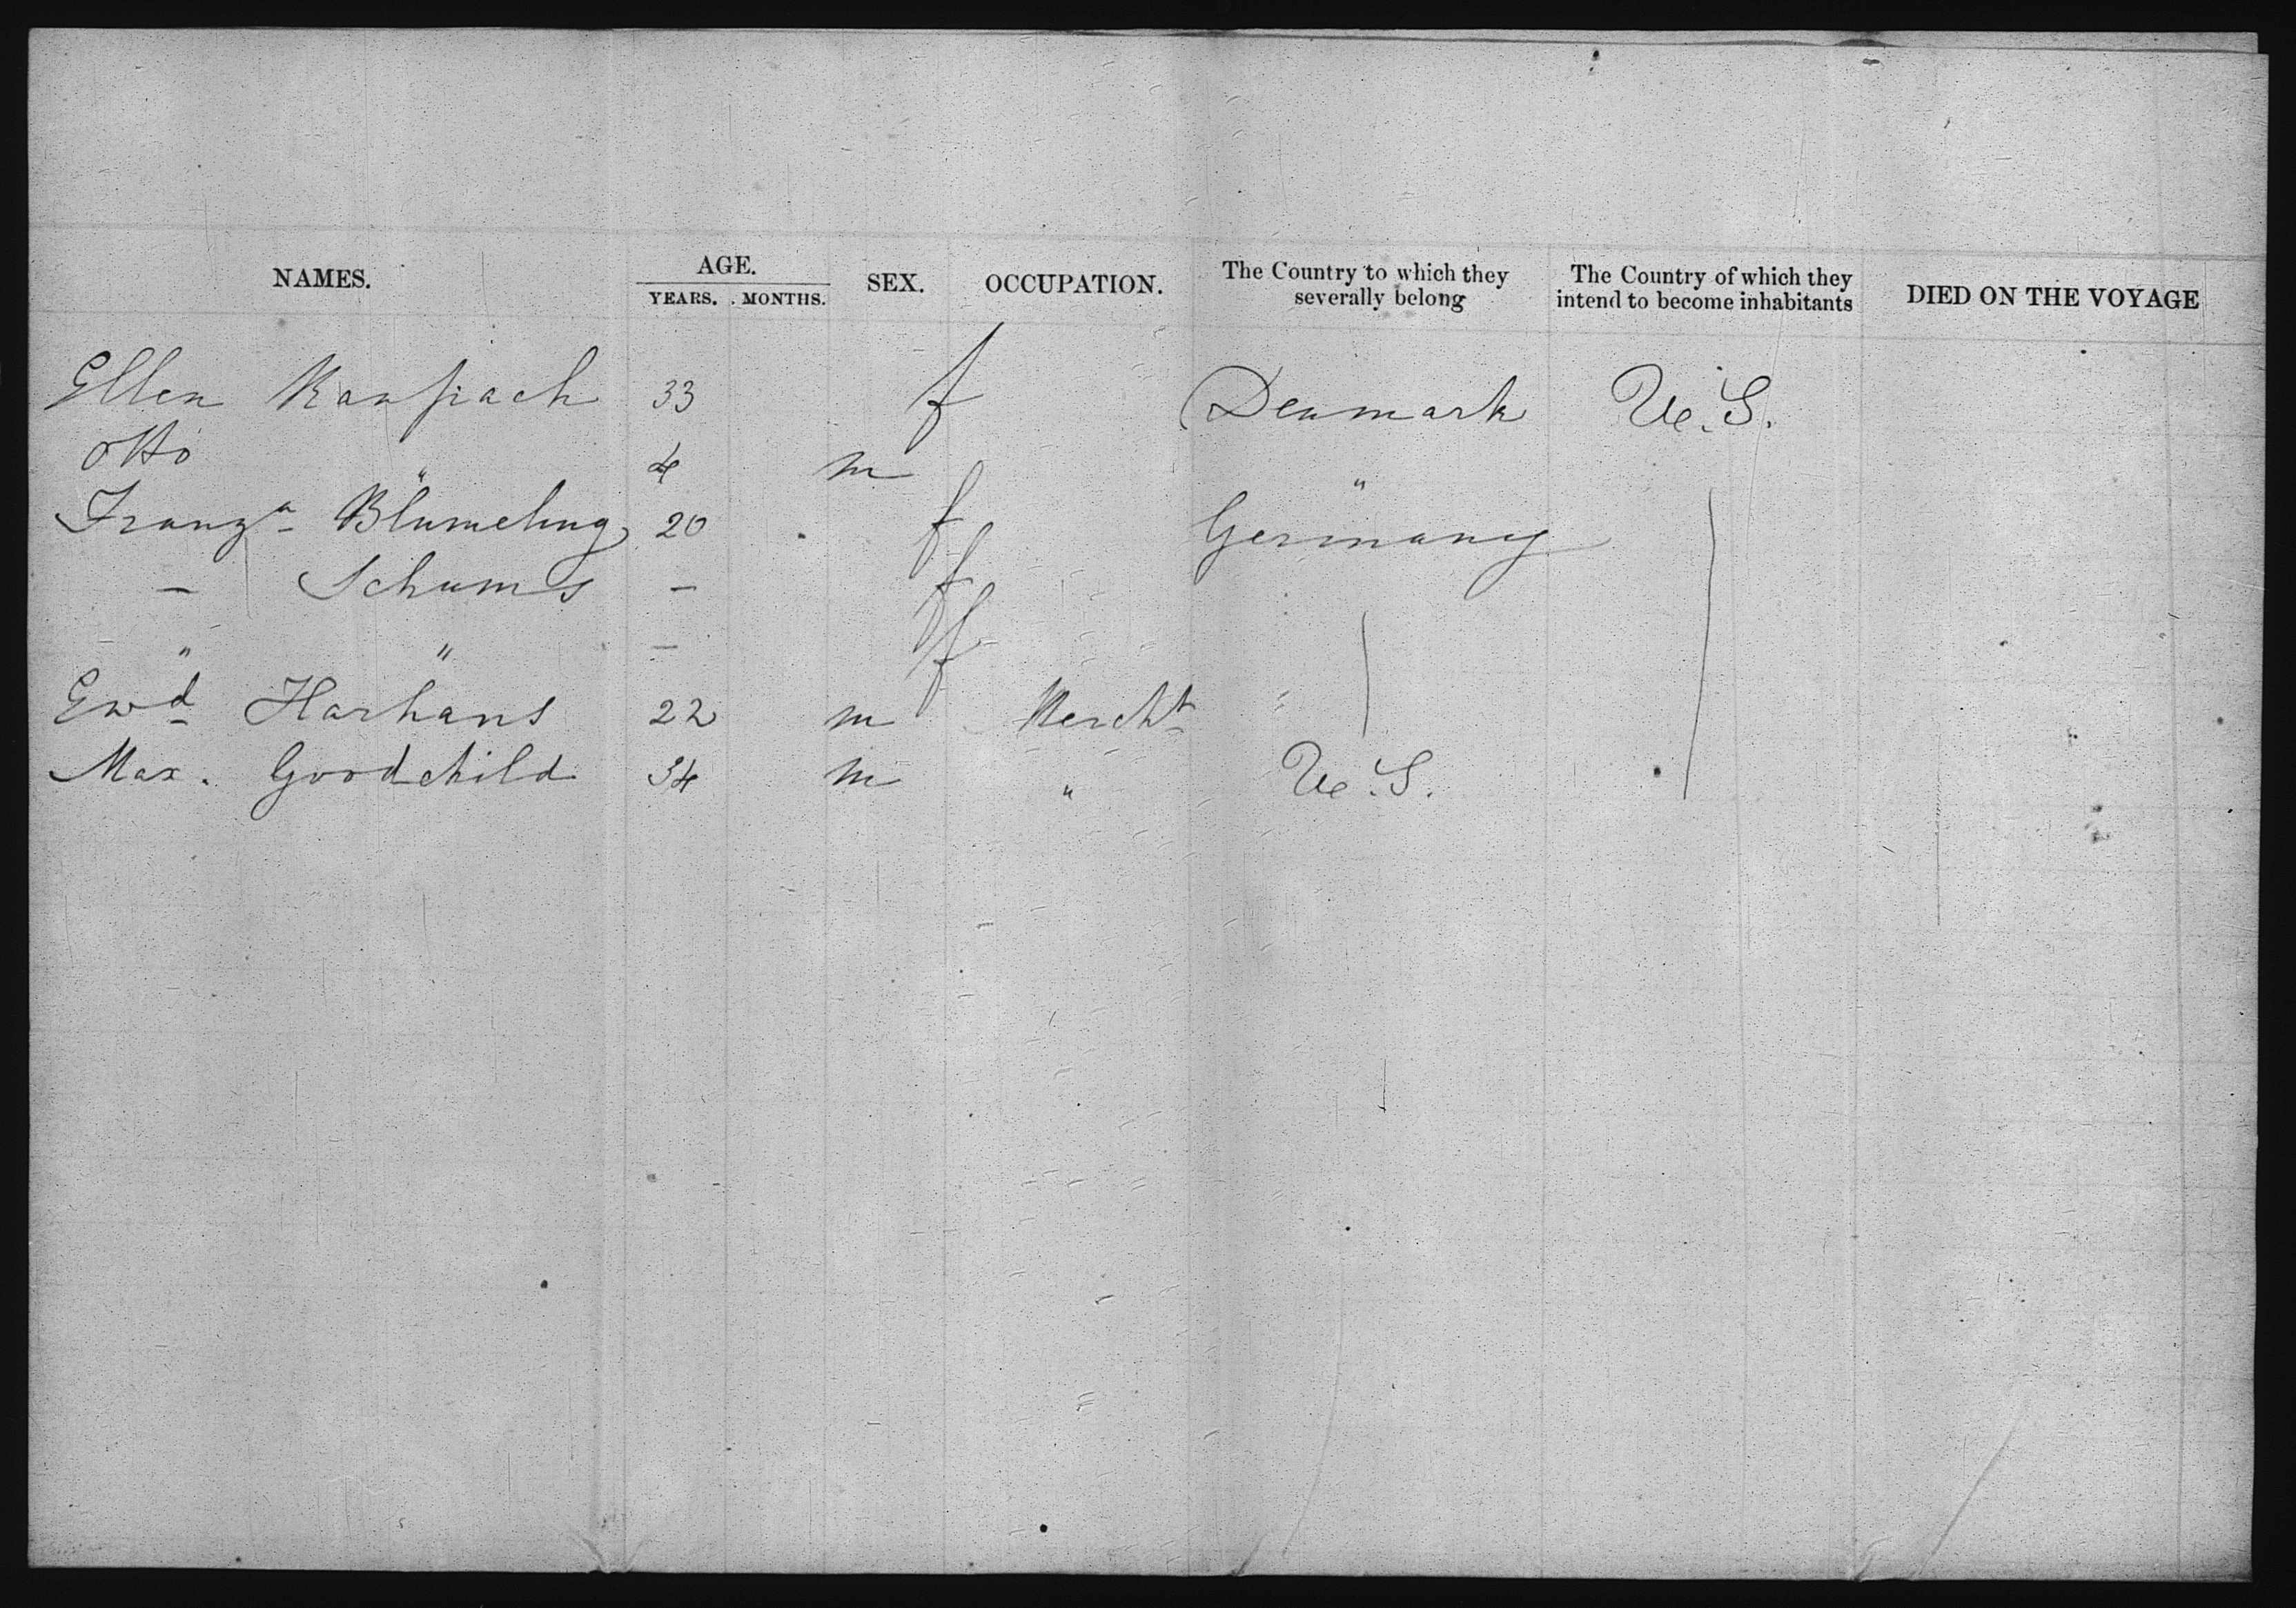 NAMES. AGE. YEARS. MONTHS. SEX. OCCUPATION. The Country to which they severally belong The Country of which they intend to become inhabitants DIED ON THE VOYAGE
Ellen 33 f Denmark U.S.
Otto " 4 m "
Franz<sup>a</sup> Blümeling 20 f Germany
— Schums — f
" " — f
Ewd Harhans 22 m Mercht
Max. Goodchild 34 m " U.S.